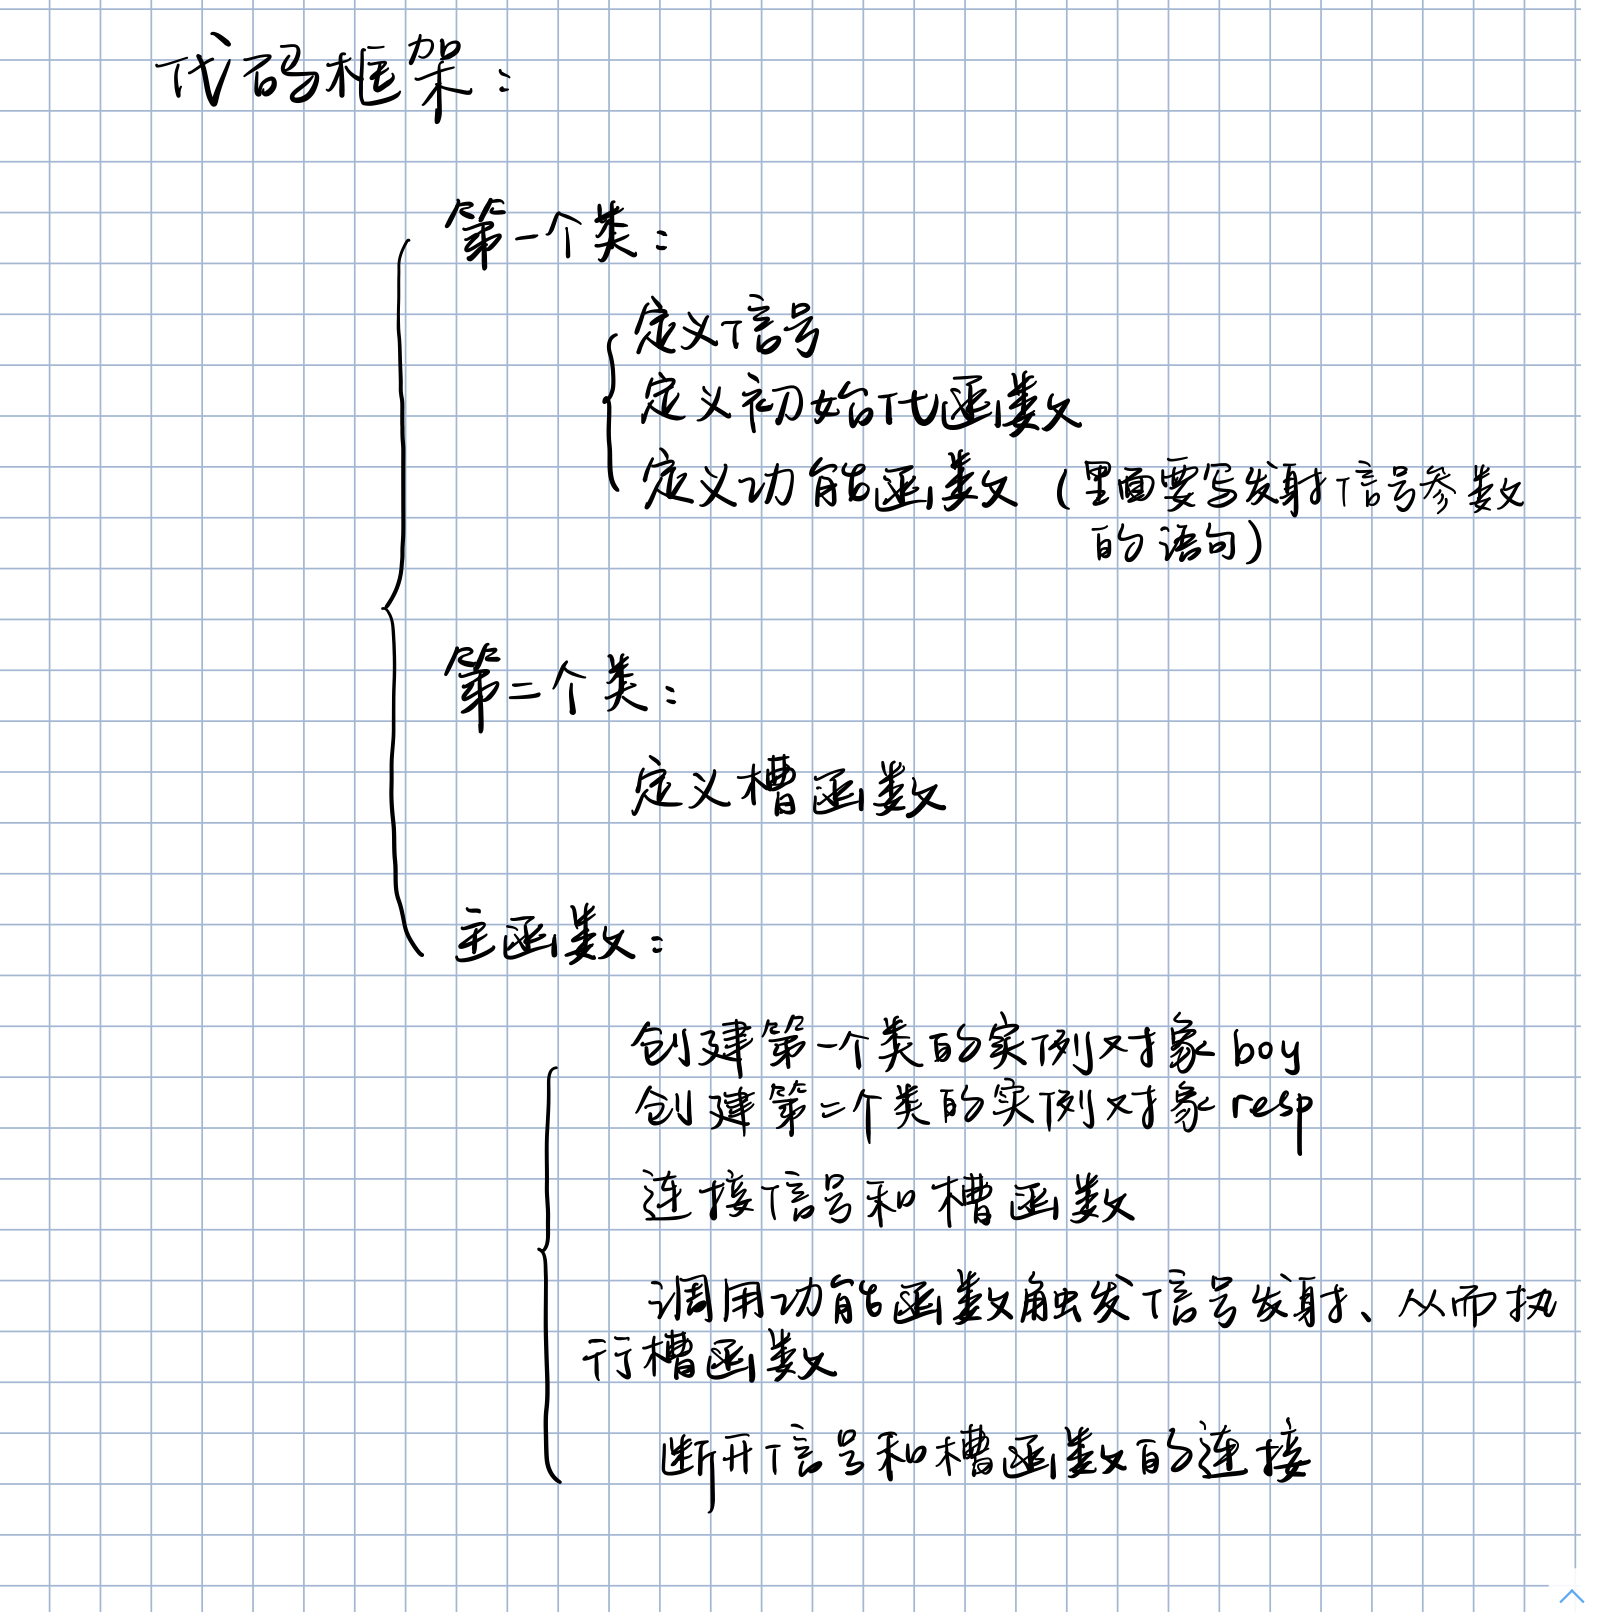 代码框架：
第一个类：
定义信号
定义初始化函数
定义功能函数（里面要写发射信号参数
的语句）
第二个类：
定义槽函数
主函数：
创建第一个类的实例对象 boy
创建第二个类的实例对象 resp
连接信号和槽函数
调用功能函数触发信号发射、从而执
行槽函数
断开信号和槽函数的连接